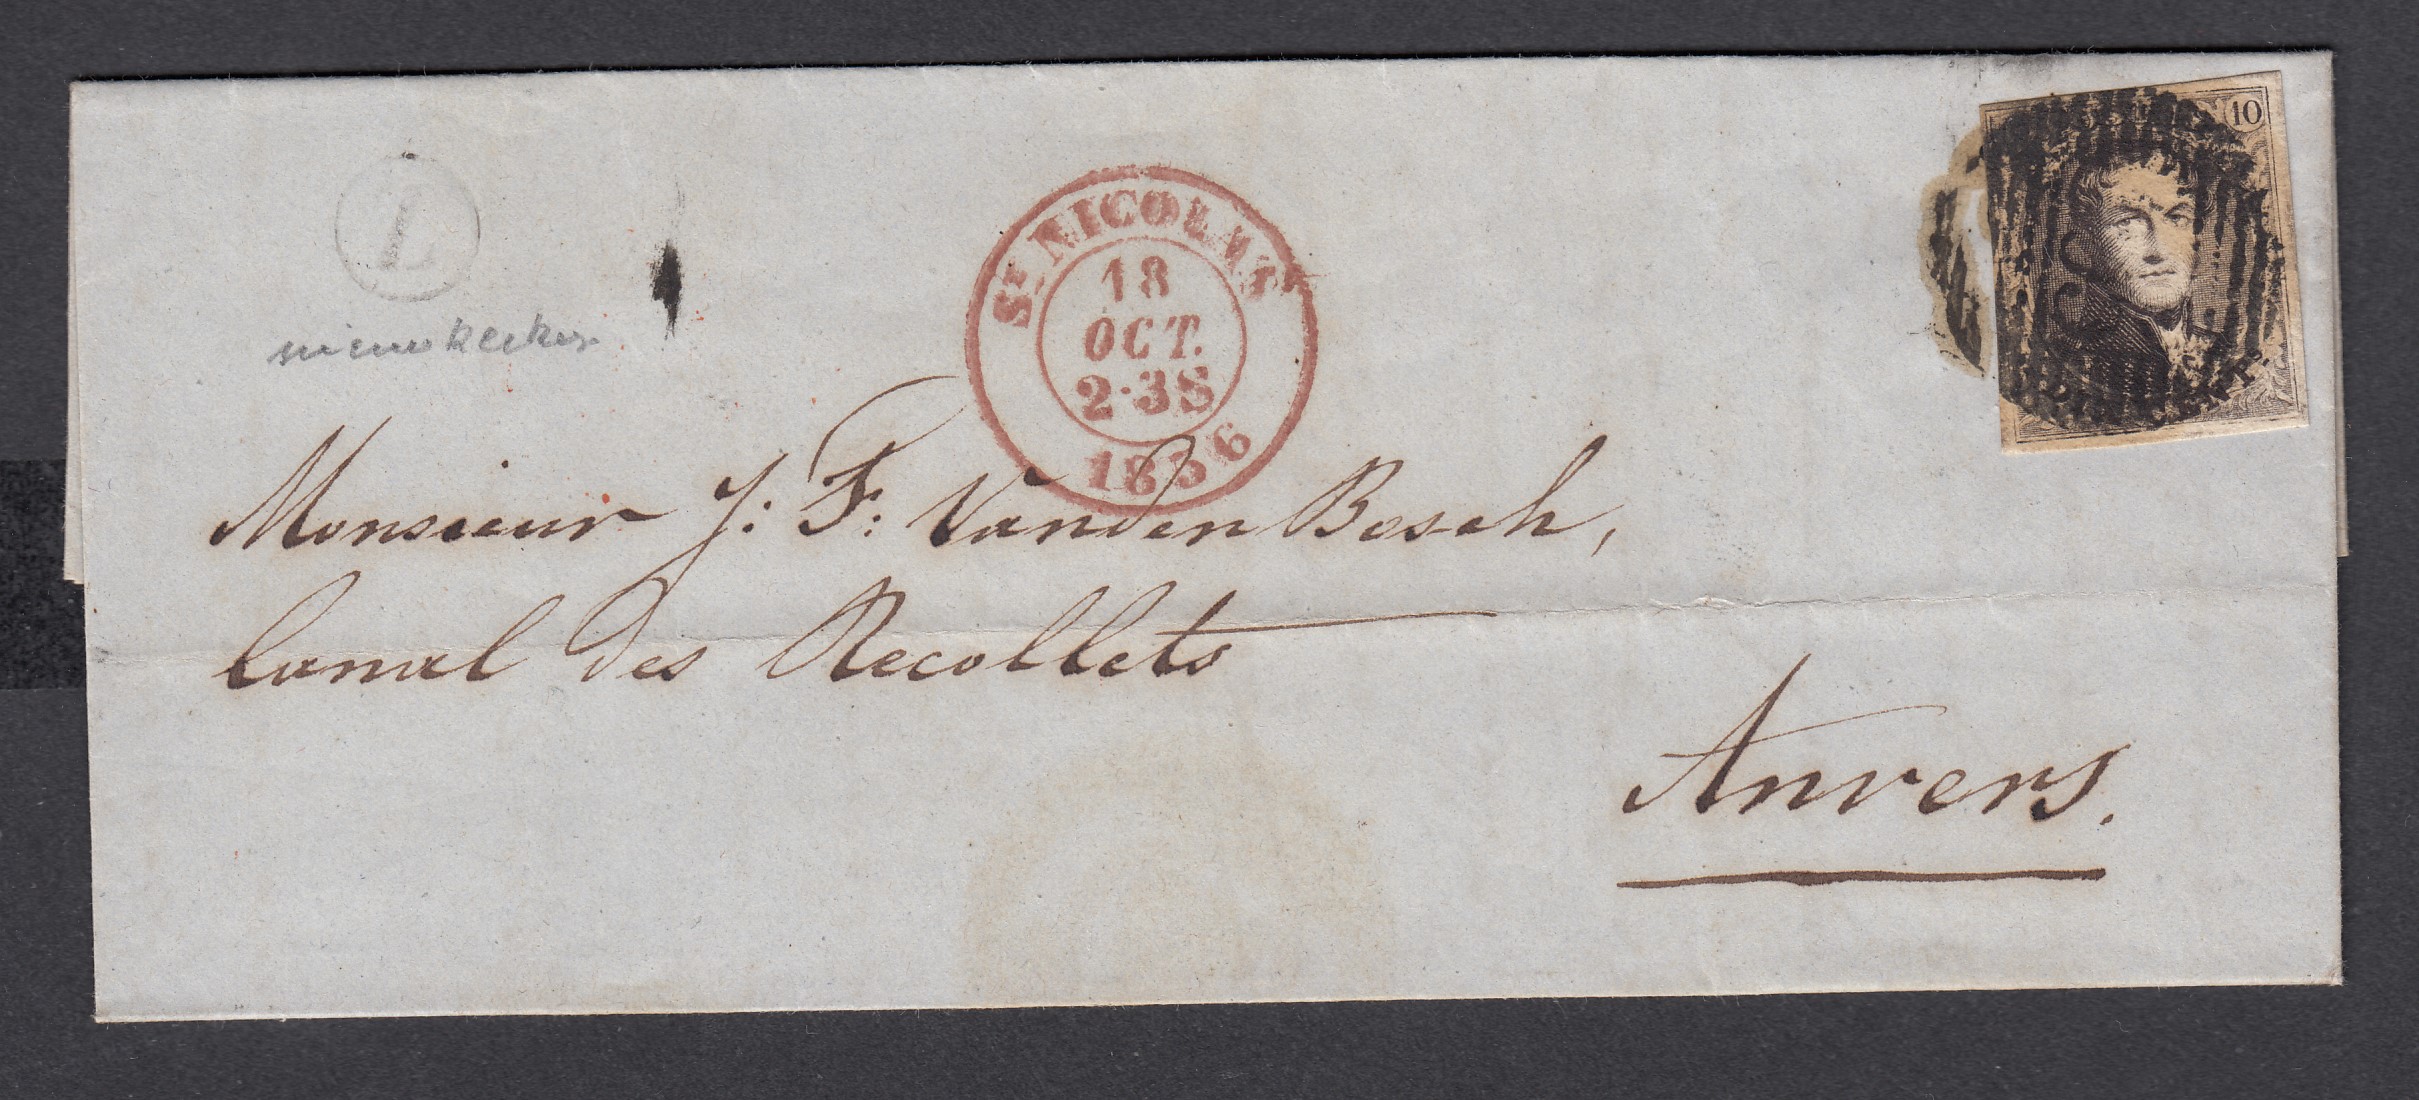 L
nieuwkerken
St NICOLAS
18
OCT.
2·3S
1856
10
Monsieur J: F: Vanden Bosch,
Canal des Recollets
Anvers.